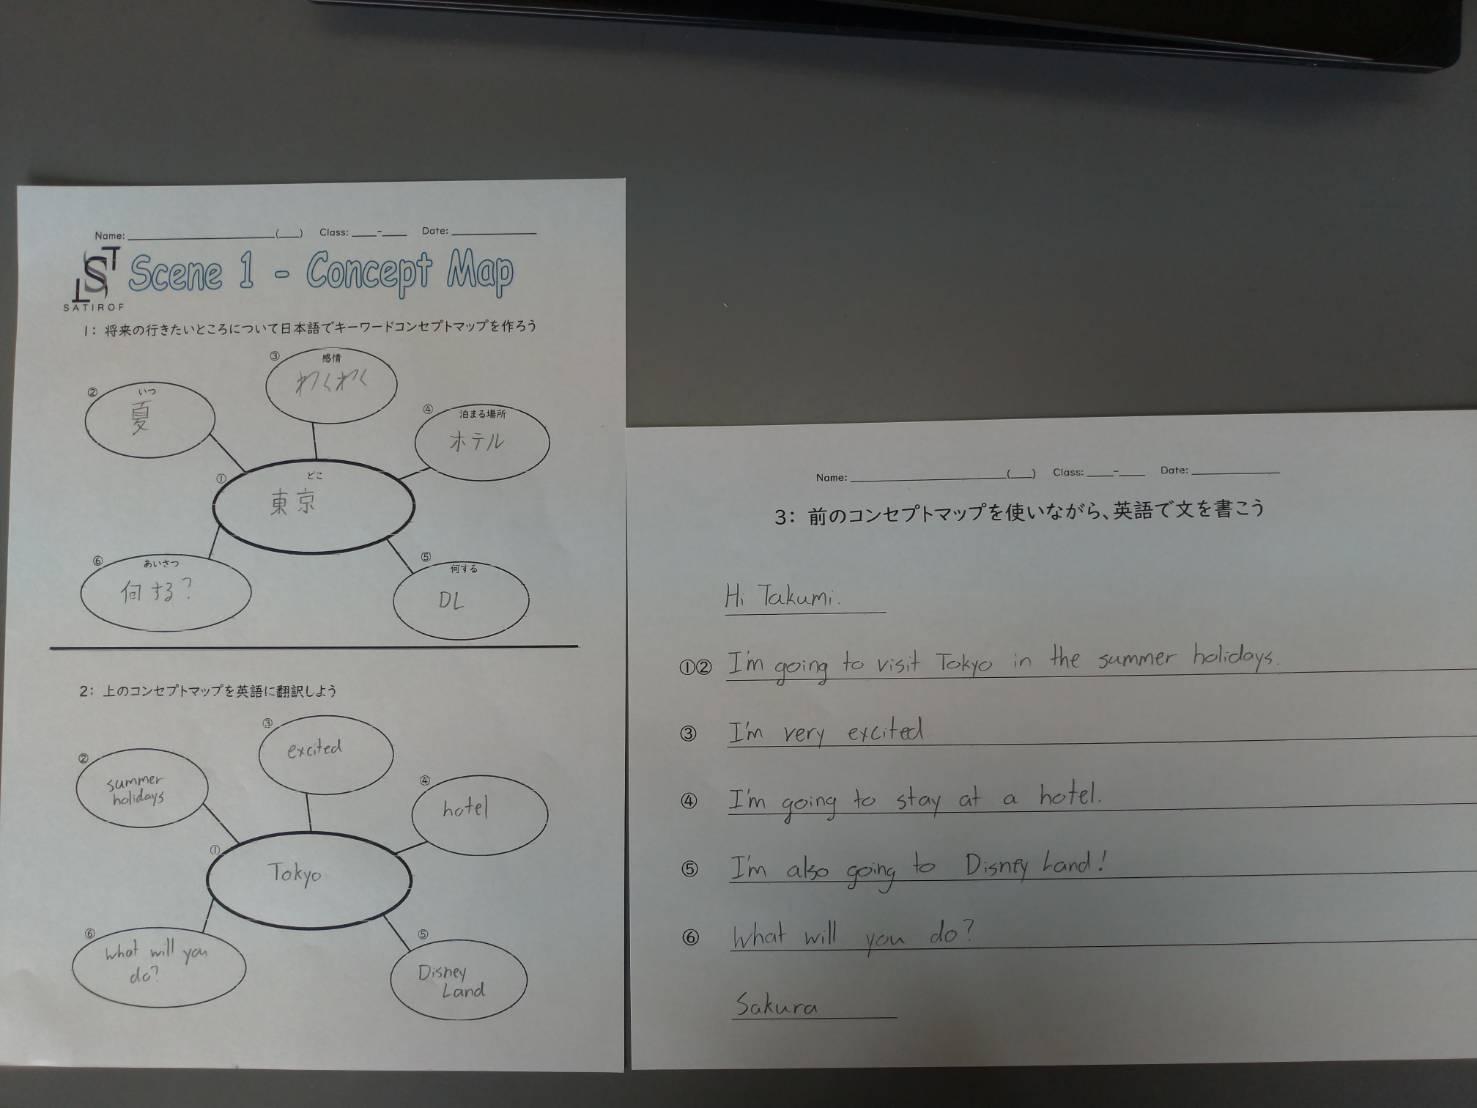 Name: ____________ (__) Class: __-__ Date: ________
SATIROF
Scene 1 - Concept Map
1: 将来の行きたいところについて日本語でキーワードコンセプトマップを作ろう
③ 感情
わくわく
② いつ
夏
④ 泊まる場所
ホテル
① どこ
東京
⑥ あいさつ
何する?
⑤ 何する
DL
2: 上のコンセプトマップを英語に翻訳しよう
③
excited
②
summer
holidays
④
hotel
①
Tokyo
⑥
What will you
do?
⑤
Disney
Land
Name: ____________ (__) Class: __-__ Date: ________
3: 前のコンセプトマップを使いながら、英語で文を書こう
Hi Takumi.
①② I'm going to visit Tokyo in the summer holidays.
③ I'm very excited
④ I'm going to stay at a hotel.
⑤ I'm also going to Disney Land!
⑥ What will you do?
Sakura